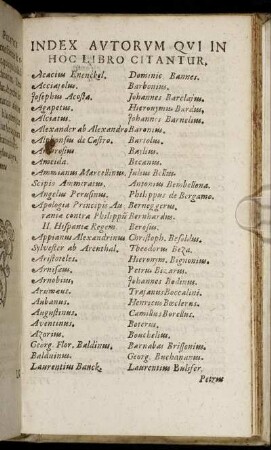 INDEX AVTORVM QVI IN
HOC LIBRO CITANTUR.
Acacius Enenckel.
Acciajolus.
Josephus Acosta.
Agapetus.
Alciatus.
Alexander ab Alexandro
Alphonsus de Castro.
Ambrosius
Ameida.
Ammianus Marcellinus.
Scipio Ammiratus.
Angelus Perusinus.
Apologia Principis Au-
raniæ contra Philippũ
II. Hispaniæ Regem.
Appianus Alexandrinus
Sylvester ab Arcenthal.
Aristoteles.
Arnisæus.
Arnobius.
Arumæus.
Aubanus.
Augustinus.
Aventinus.
Azorius.
Georg. Flor. Baldinus.
Balduinus.
Laurentius Banck.
Dominic. Bannes.
Barbonius.
Johannes Barclajus.
Hieronymus Bardus.
Johannes Barnesius.
Baronius.
Bartolus.
Basilius.
Becanus.
Julius Bellus.
Antonius Bembellona.
Philippus de Bergamo.
Berneggerus.
Bernhardus.
Berosus.
Christoph. Besoldus.
Theodorus Beza.
Hieronym. Bignonius.
Petrus Bizarus.
Johannes Bodinus.
Trajanus Boccalini.
Henricus Bœclerus.
Camillus Borellus.
Boterus.
Bouchelius.
Barnabas Brissonius.
Georg. Buchananus.
Laurentius
Petrus